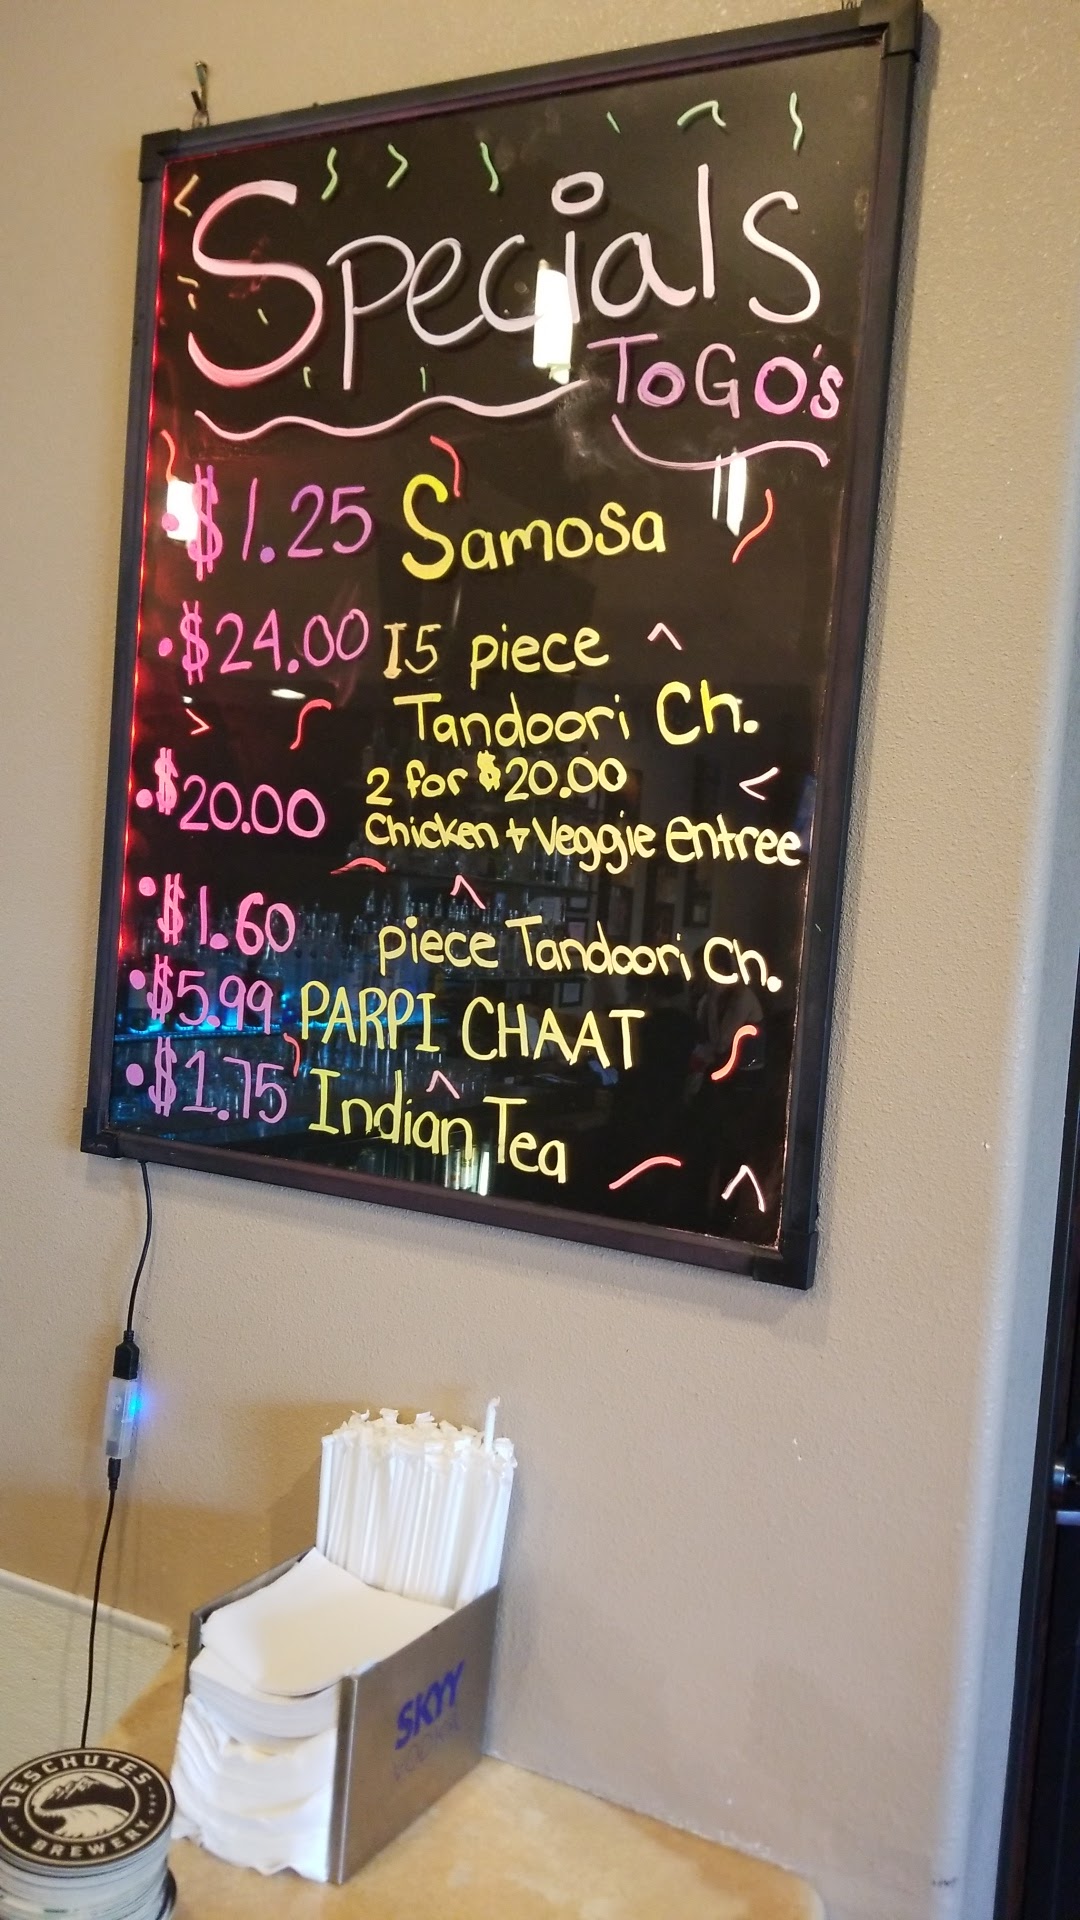 Specials
ToGO's
• $1.25 Samosa
• $24.00 15 piece
Tandoori Ch.
• $20.00 2 for $20.00
Chicken + Veggie entree
• $1.60 piece Tandoori Ch.
• $5.99 PARPI CHAAT
• $1.75 Indian Tea
SKYY
VODKA
DESCHUTES
BREWERY